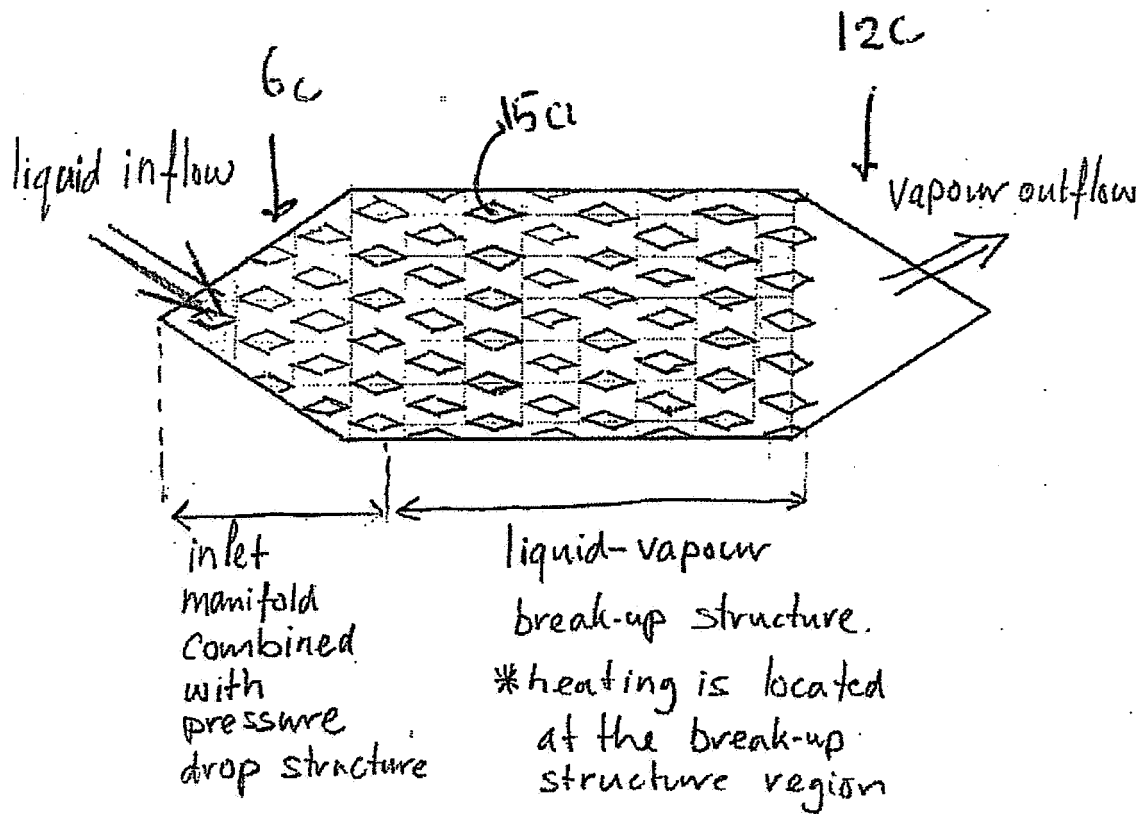 6c
12c
15a
liquid inflow
vapour outflow
inlet
manifold
combined
with
pressure
drop structure
liquid-vapour
break-up structure.
*heating is located
at the break-up
structure region